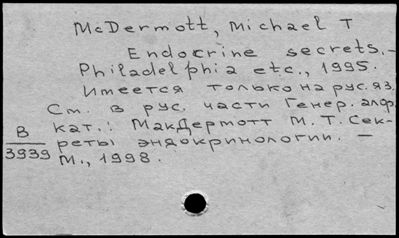 McDermott, Michael T
Endocrine secrets. –
Philadelphia etc., 1995.
Имеется только на рус. яз.
См. в рус. части Генер. алф.
кат.: МакДермотт М. Т. Сек-
реты эндокринологии. –
М., 1998.
В
3939